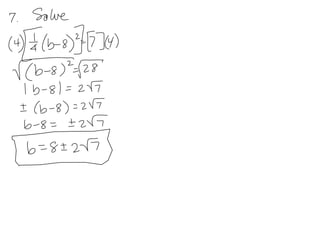 7. Solve
(4)[1/4 (b-8)²] = [7](4)
√(b-8)² = √28
|b-8| = 2√7
± (b-8) = 2√7
b-8 = ±2√7
b = 8 ± 2√7